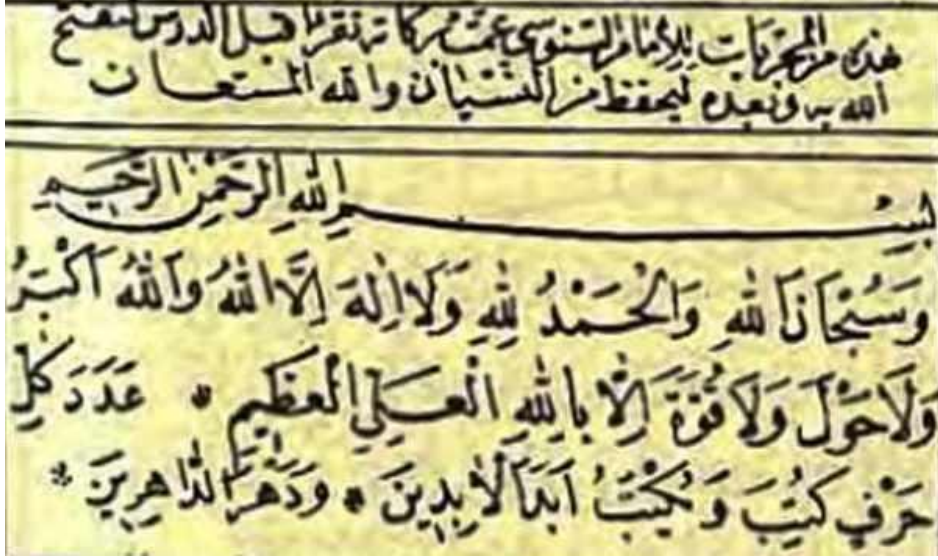 هذه من المجربات للإمام السنوسي عمت بركاته تقرأ قبل الدرس ليفتح
الله به وبعده ليحفظ من النسيان والله المستعان
بِسْمِ اللهِ الرَّحْمٰنِ الرَّحِيمِ
وَسُبْحَانَ اللهِ وَالْحَمْدُ لِلهِ وَلَا اِلٰهَ اِلَّا اللهُ وَاللهُ اَكْبَرُ
وَلَا حَوْلَ وَلَا قُوَّةَ اِلَّا بِاللهِ الْعَلِيِّ الْعَظِيمِ * عَدَدَ كُلِّ
حَرْفٍ كُتِبَ وَيُكْتَبُ اَبَدَ الْاٰبِدِينَ * وَدَهْرَ الدَّاهِرِينَ *